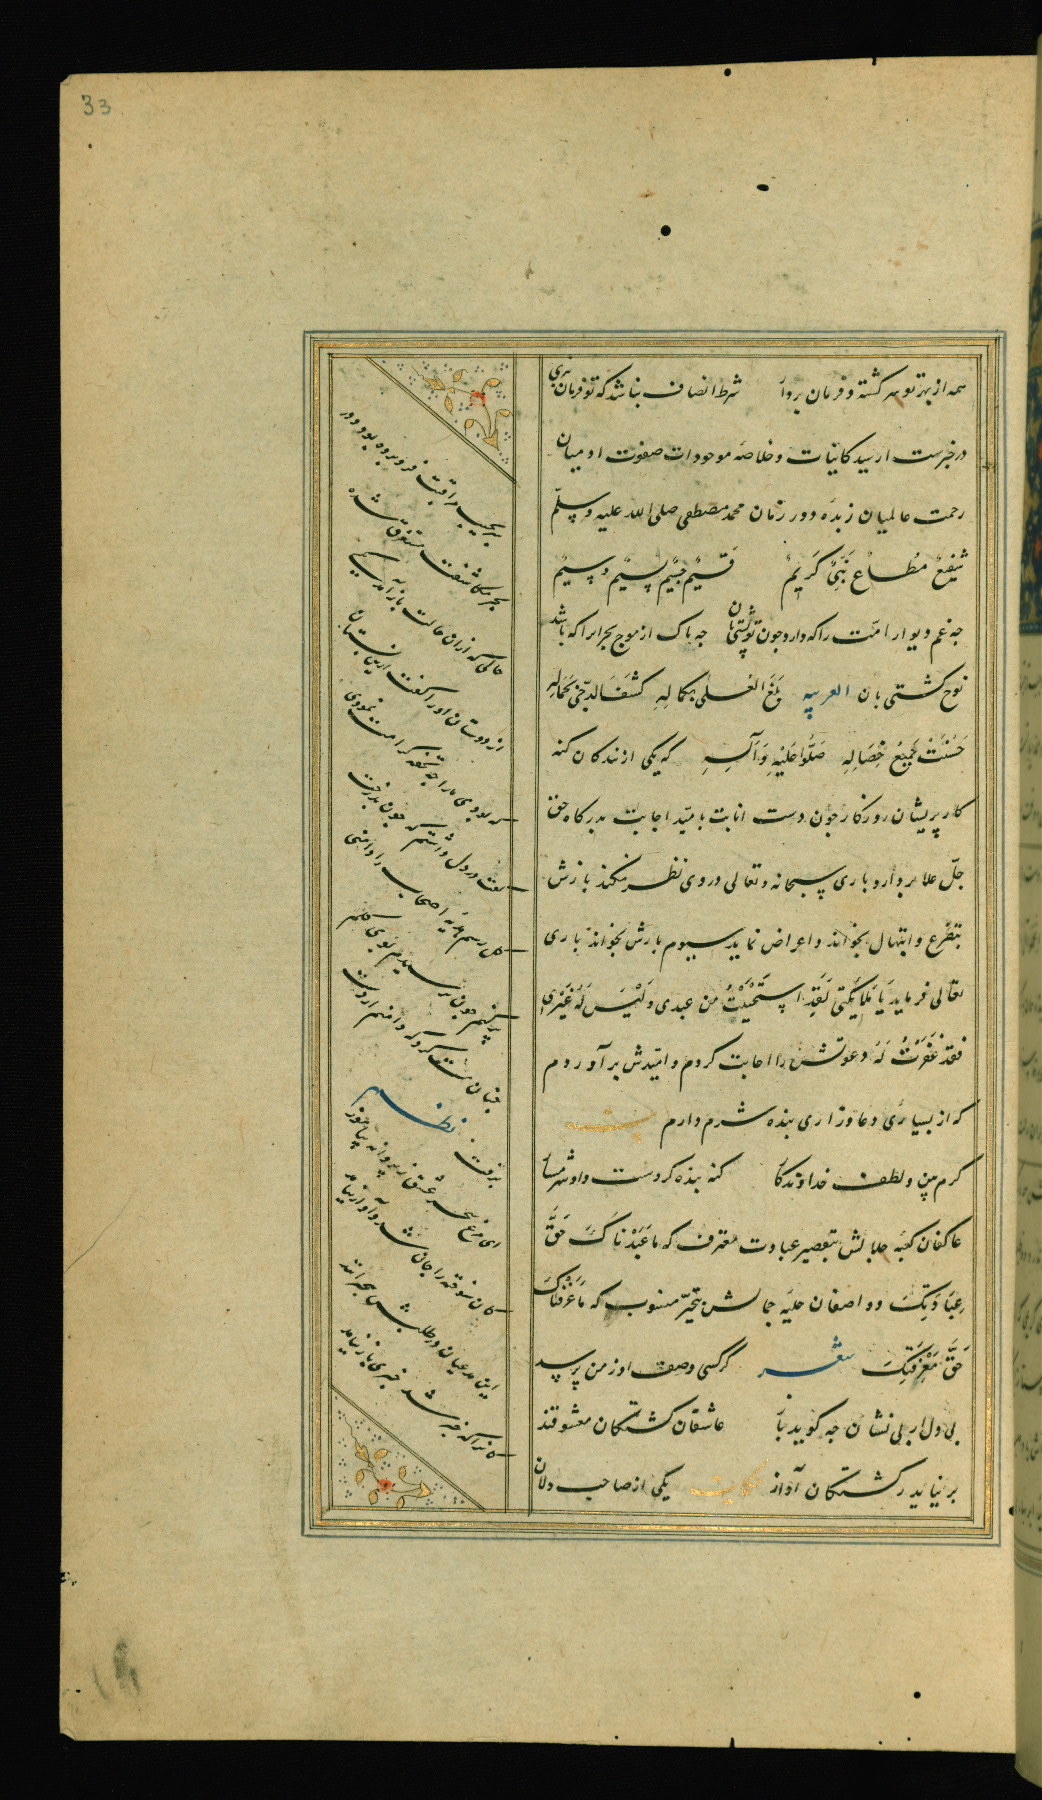 33
همه از بهر تو سرگشته و فرمان بردار شرط انصاف نباشد که تو فرمان نبری
در خبرست از سید کاینات و خلاصه موجودات صفوت آدمیان
رحمت عالمیان زبده دور زمان محمد مصطفی صلی الله علیه و سلم
شفیعٌ مُطاعٌ نبیٌّ کریمٌ قسیمٌ جسیمٌ نسیمٌ وسیمٌ
چه غم دیوار امّت را که دارد چون تو پشتیبان چه باک از موج بحر آنرا که باشد
نوح کشتی بان العربیه بَلَغَ العُلَی بِکَمالِهِ کَشَفَ الدُّجَی بِجَمالِهِ
حَسُنَتْ جَمیعُ خِصَالِهِ صَلُّوا عَلَیْهِ وَآلِهِ که یکی از بندگان گنه
کار پریشان روزگار چون دست انابت بامید اجابت بدرگاه حق
جلّ علا بردارد باری سبحانه و تعالی در وی نظر نکند بازش
بتضرع و ابتهال بخواند و اعراض نماید سیوم بارش بخواند باری
تعالی فرماید یَا مَلَائِکَتِی لَقَدِ اسْتَحْیَیْتُ من عبدی وَ لَیْسَ لَهُ غَیْرِی
فَقَدْ غَفَرْتُ لَهُ دعوتش را اجابت کردم و امیدش برآوردم
که از بسیاری دعا و زاری بنده شرم دارم بیت
کرم بین و لطف خداوندکار گنه بنده کردست و او شرمسار
عاکفان کعبه جلالش بتقصیر عبادت معترف که مَا عَبَدْنَاکَ حَقَّ
عِبَادَتِکَ و واصفان حلیه جمالش بتحیّر منسوب که مَا عَرَفْنَاکَ
حَقَّ مَعْرِفَتِکَ شعر گر کسی وصف او ز من پرسد
بی دل از بی نشان چه گوید باز عاشقان کشتگان معشوقند
برنیاید ز کشتگان آواز حکایت یکی از صاحب دلان
سر بجیب مراقبت فرو برده بود و در
بحر مکاشفت مستغرق شده
حالی که از آن حالت باز آمد یکی
از دوستان او را گفت ازین بستان
که بودی ما را چه تحفه کرامت نمودی
گفت در دل داشتم که چون بدرخت
گل رسم هدیه اصحاب را دامنی
پر کنم چون برسیدم بوی گلم
چنان مست کرد که دامنم از دست
برفت نظم
ای مرغ سحر عشق ز پروانه بیاموز
کان سوخته را جان شد و آواز نیامد
این مدعیان در طلبش بی خبرانند
کانرا که خبر شد خبری باز نیامد